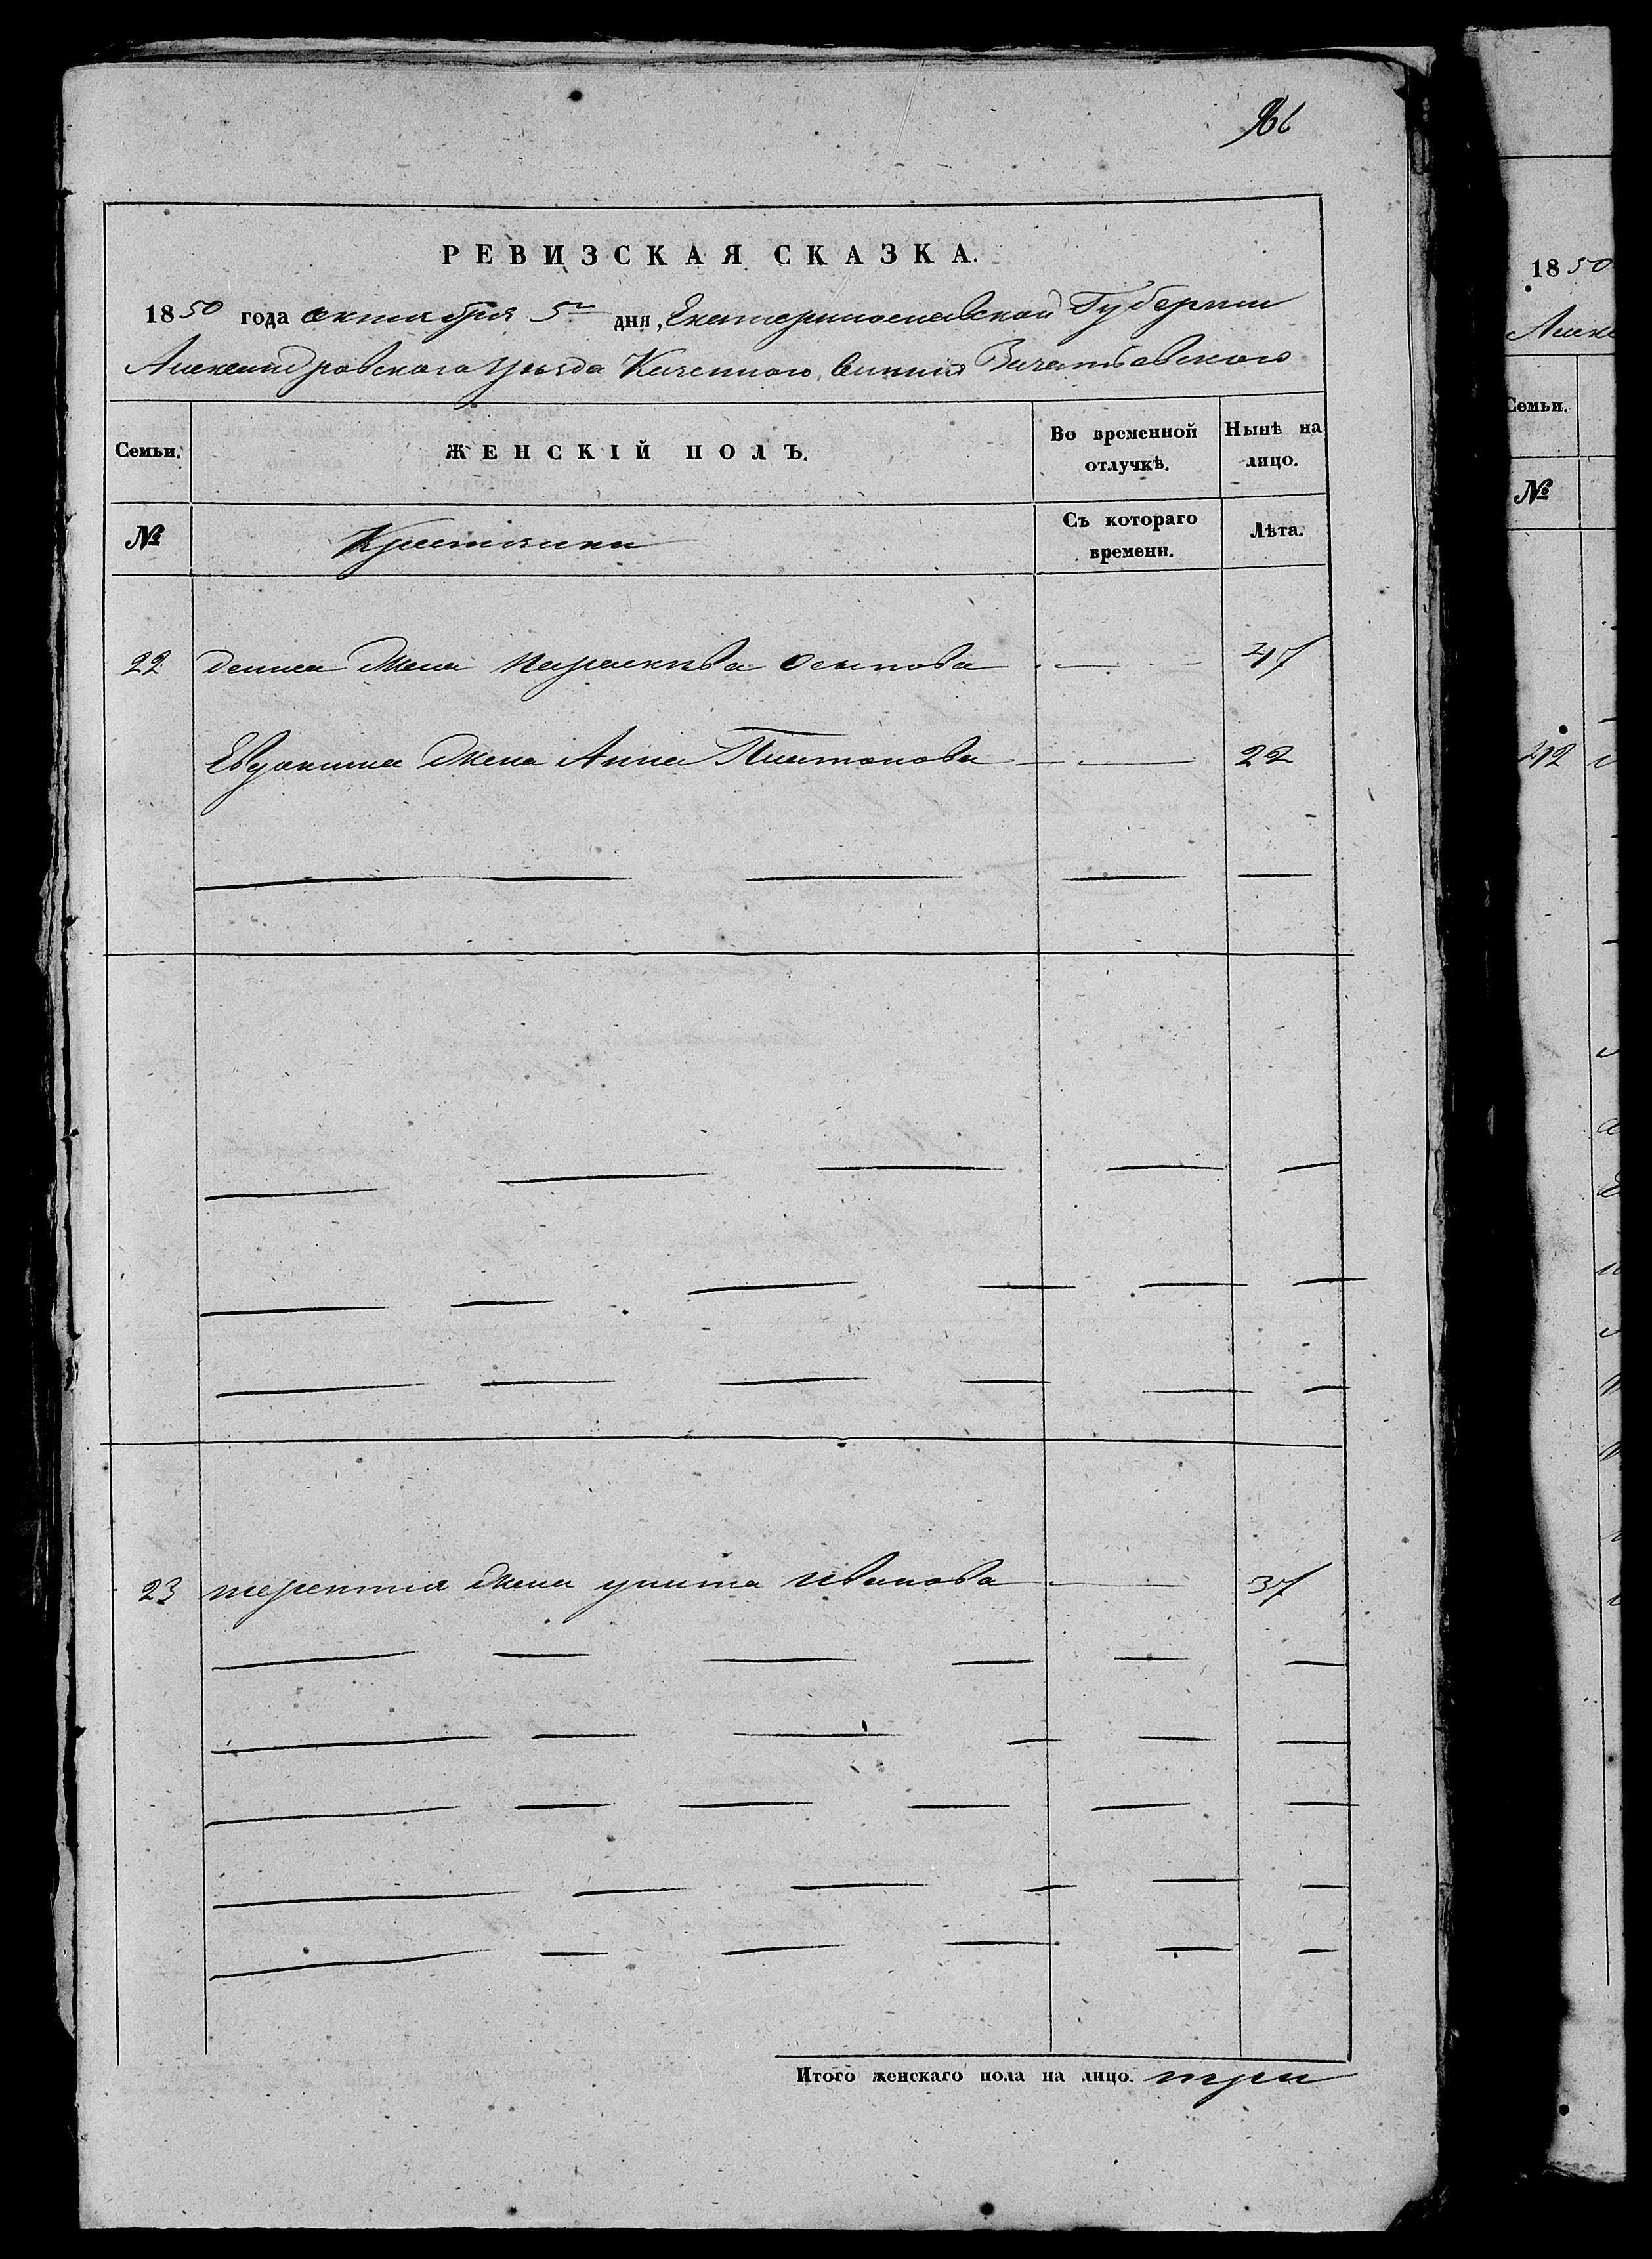 РЕВИЗСКАЯ СКАЗКА.
1850 года октября 5го дня, Екатеринославской Губернии
Александровского уезда Казенного Селения
Семьи. ЖЕНСКІЙ ПОЛЪ. Во временной отлучкѣ. Нынѣ на лицо.
№ Крестьяни Съ котораго времени. Лѣта.
22 дениса жена параскѣва осипова 47
Евдокима жена Анна Платонова 22
23 терентия жена улита иванова 37
Итого женскаго пола на лицо. три
1850
Алекс
Семьи.
№
42